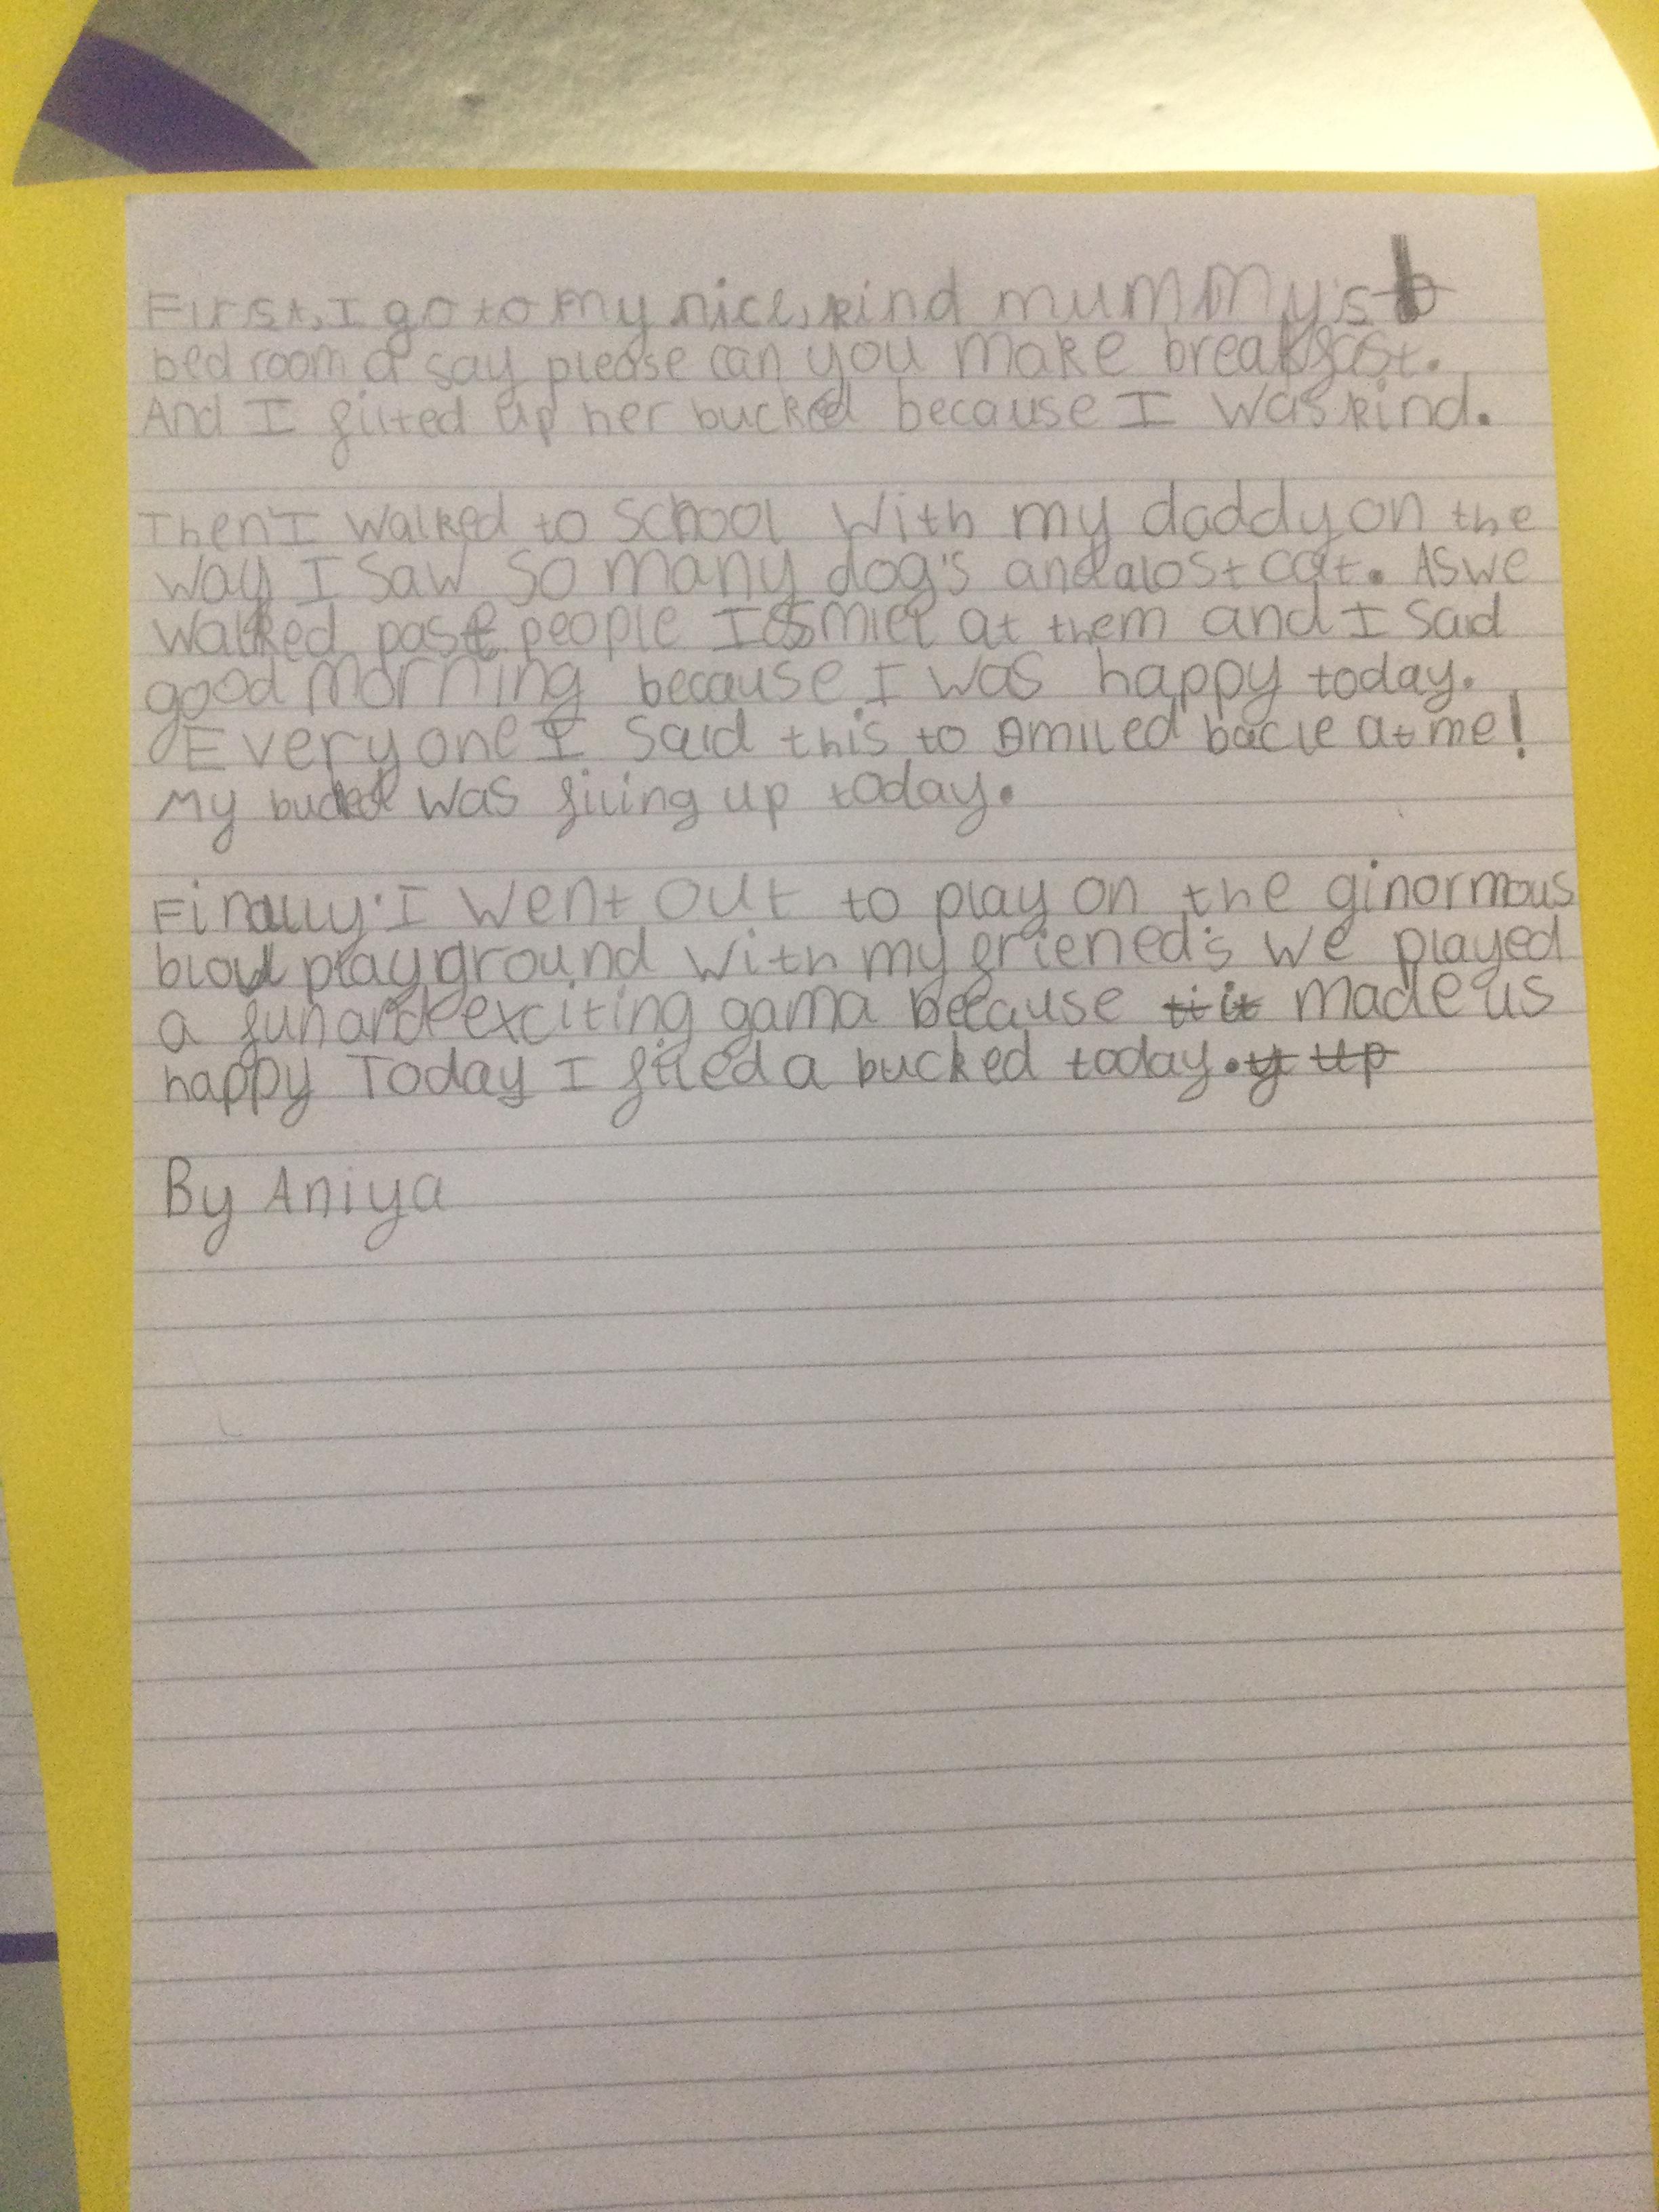 First, I go to my nice, kind mummy's
bed room a say please can you make breakfast.
And I filted up her bucked because I was kind.
Then I walked to school with my daddy on the
way I saw so many dog's and a lost cat. As we
walked past people I smiel at them and I said
good morning because I was happy today.
Everyone I said this to smiled back at me!
My bucked was filing up today.
Finally I went out to play on the ginormous
playground with my friened's we played
a fun and exciting gama because made us
happy Today I filed a bucked today.
By Aniya